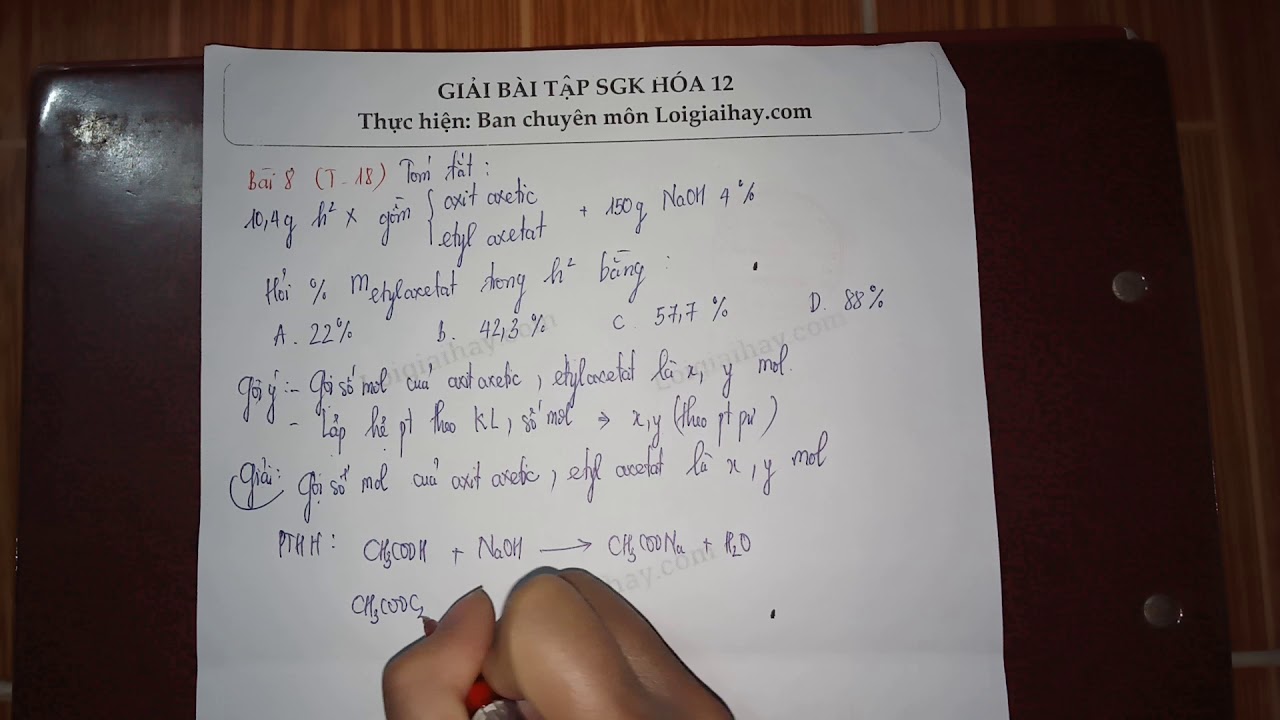 GIẢI BÀI TẬP SGK HÓA 12
Thực hiện: Ban chuyên môn Loigiaihay.com
Bài 8 (T-18) Tóm tắt:
10,4g h² X gồm { axit axetic
etyl axetat + 150g NaOH 4%
Hỏi % m etylaxetat trong h² bằng:
A. 22% B. 42,3% C. 57,7% D. 88%
Loigiaihay.com Loigiaihay.com
Gợi ý: - Gọi số mol của axit axetic, etylaxetat là x, y mol.
- Lập hệ pt theo KL, số mol → x,y (theo pt pư)
Giải: Gọi số mol của axit axetic, etyl axetat là x, y mol
PTHH: CH₃COOH + NaOH → CH₃COONa + H₂O
CH₃COOC₂